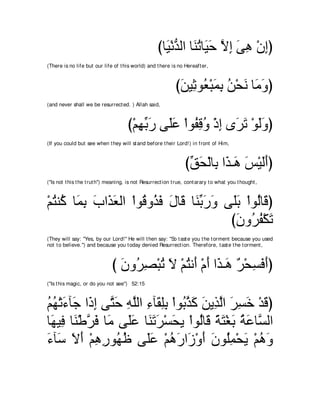 (إِنْ هِىَ إِلاَّ حَيَاتُنَا الدُّنْيَا)
(There is no life but our life of this world) and there is no Hereafter,
(وَمَا نَحْنُ بِمَبْعُوثِينَ)
(and never shall we be resurrected. ) Allah said,
(وَلَوْ تَرَى إِذْ وُقِفُواْ عَلَى رَبِّهِمْ)
(If you could but see when they will stand before their Lord!) in front of Him,
(أَلَيْسَ هَـذَا بِالْحَقِّ)
("Is not this the truth") meaning, is not Resurrection true, contarary to what you thought,
(قَالُواْ بَلَى وَرَبِّنَا قَالَ فَذُوقُواْ العَذَابَ بِمَا كُنتُمْ
تَكْفُرُونَ)
(They will say: "Yes, by our Lord!" He will then say: "So taste you the torment because you used
not to believe.") and because you today denied Resurrection. Therefore, taste the torment,
(أَفَسِحْرٌ هَـذَا أَمْ أَنتُمْ لاَ تُبْصِرُونَ )
("Is this magic, or do you not see") 52:15
(قَدْ خَسِرَ الَّذِينَ كَذَّبُواْ بِلِقَآءِ اللَّهِ حَتَّى إِذَا جَآءَتْهُمُ
السَّاعَةُ بَغْتَةً قَالُواْ يَحْسْرَتَنَا عَلَى مَا فَرَّطْنَا فِيهَا
وَهُمْ يَحْمِلُونَ أَوْزَارَهُمْ عَلَى ظُهُورِهِمْ أَلاَ سَآءَ